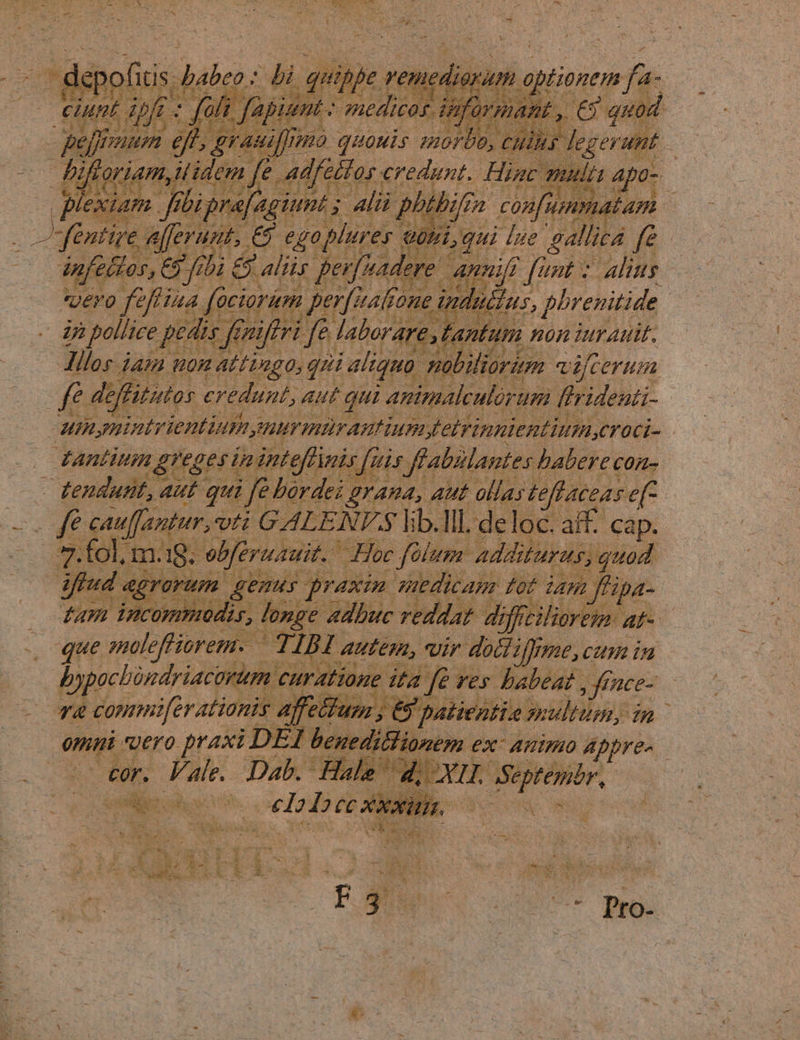 depoſitis habeo: hi quippe remediorum optionem fa-
ciunt ipſi: ſoli ſapiunt: medicos informant, & quod
peſſimum eſt, grauiſſimo quouis morbo, cuius legerunt
hiſtoriam, iſidem ſe adfectos credunt. Hinc multi apo-
plexiam ſibi præſagiunt; alii phthiſin conſummatam
ſentire aſſerunt, & ego plures noui, qui lue gallica ſe
infectos, & ſibi & aliis perſuadere anniſi ſunt: alius
vero feſtiua ſociorum perſuaſione inductus, phrenitide
in pollice pedis ſiniſtri ſe laborare, tantum non iurauit.
Illos iam non attingo, qui aliquo nobiliorum viſcerum
ſe deſtitutos credunt, aut qui animalculorum ſtridenti-
um, mintrientium, murmurantium, tetrinnientium, croci-
tantium greges in inteſtinis ſuis ſtabulantes habere con-
tendunt, aut qui ſe hordei grana, aut ollas teſtaceas eſ-
ſe cauſſantur, vti GALENVS lib. III. de loc. aff. cap.
7. fol. m. 18. obſeruauit. Hoc ſolum additurus, quod
iſtud ægrorum genus praxin medicam tot iam ſtipa-
tam incommodis, longe adhuc reddat difficiliorem at-
que moleſtiorem. TIBI autem, vir doctiſſime, cum in
hypochondriacorum curatione ita ſe res habeat, ſince-
ræ commiſerationis affectum, & patientiæ multum, in
omni vero praxi DEI benedictionem ex animo appre-
cor. Vale. Dab. Halæ d. XII. Septembr.
cIↄ Iↄ cc xxxiiii.
F 3
Pro-